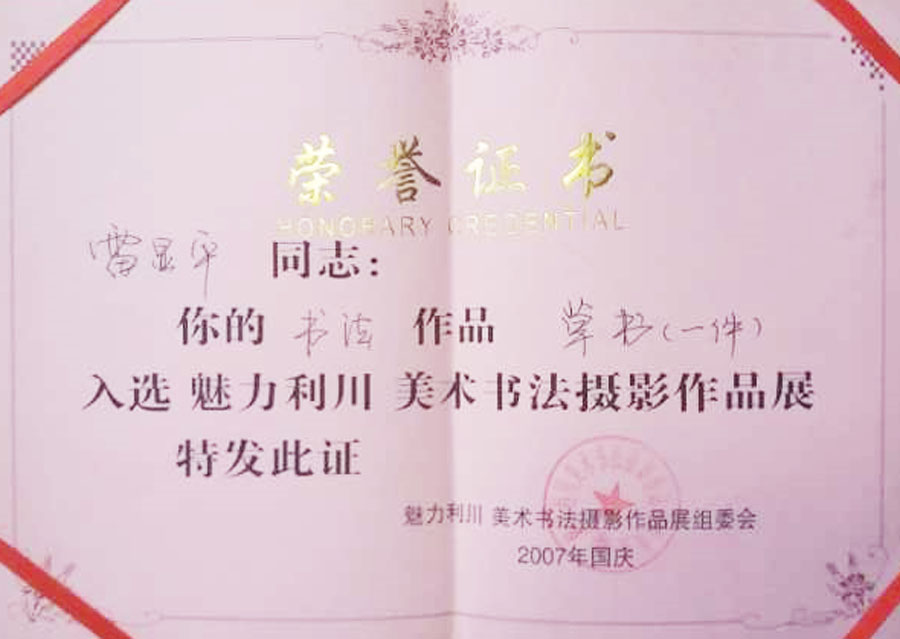 荣誉证书
HONORARY CREDENTIAL
雷显平 同志:
你的 书法 作品 草书(一件)
入选 魅力利川 美术书法摄影作品展
特发此证
魅力利川 美术书法摄影作品展组委会
2007年国庆